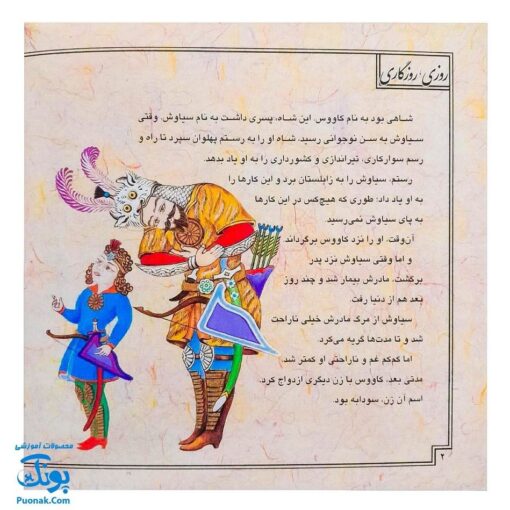 روزی، روزگاری
شاهی بود به نام کاووس. این شاه، پسری داشت به نام سیاوش. وقتی
سیاوش به سن نوجوانی رسید، شاه او را به رستم پهلوان سپرد تا راه و
رسم سوارکاری، تیراندازی و کشورداری را به او یاد بدهد.
رستم، سیاوش را به زابلستان برد و این کارها را
به او یاد داد؛ طوری که هیچ‌کس در این کارها
به پای سیاوش نمی‌رسید.
آن‌وقت، او را نزد کاووس برگرداند
و اما وقتی سیاوش نزد پدر
برگشت، مادرش بیمار شد و چند روز
بعد هم از دنیا رفت.
سیاوش از مرگ مادرش خیلی ناراحت
شد و تا مدت‌ها گریه می‌کرد.
اما کم‌کم غم و ناراحتی او کمتر شد.
مدتی بعد، کاووس با زن دیگری ازدواج کرد.
اسم آن زن، سودابه بود.
۲
محصولات آموزشی
پونک
Puonak.Com